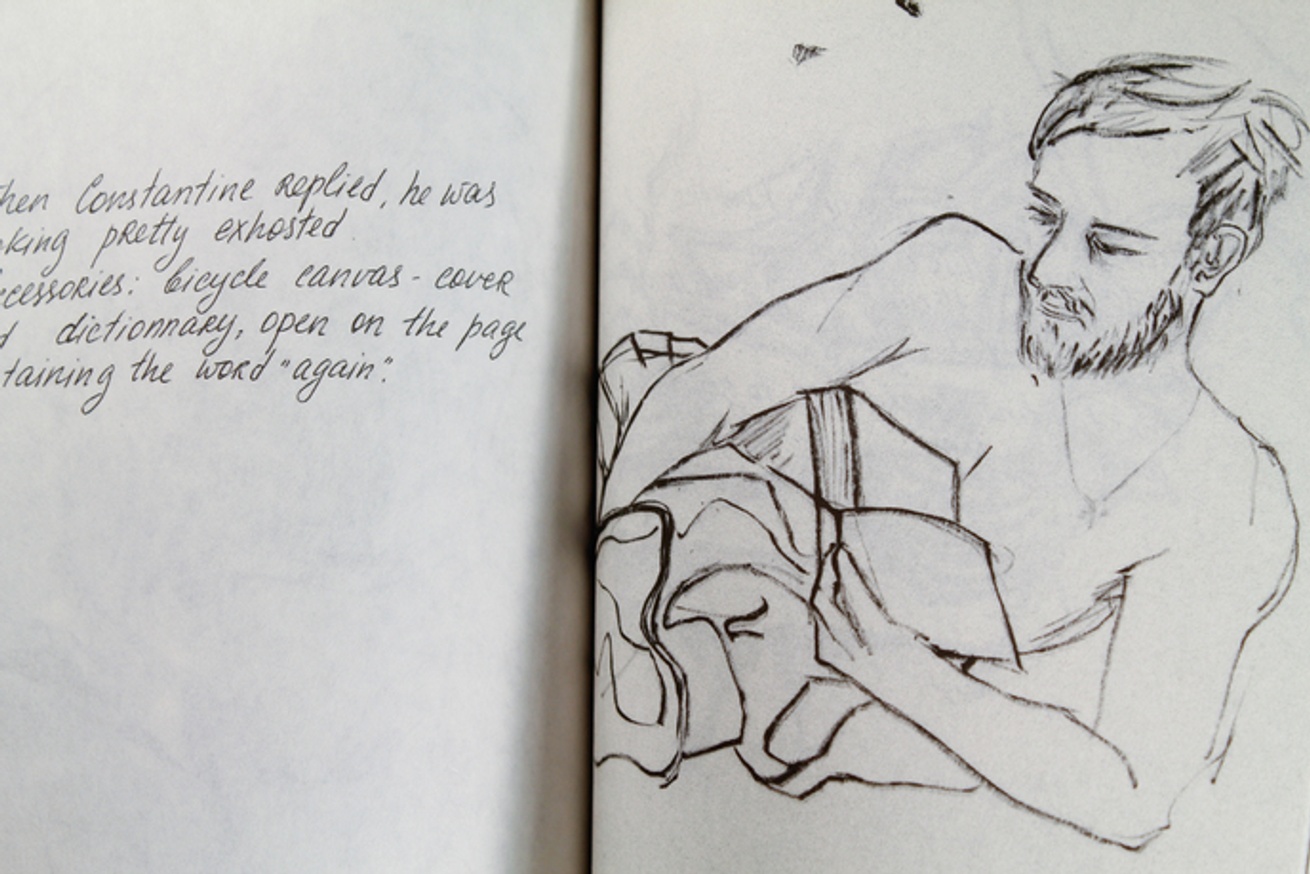 hen Constantine replied, he was
king pretty exhosted
cessories: bicycle canvas - cover
d dictionnary, open on the page
taining the word "again".